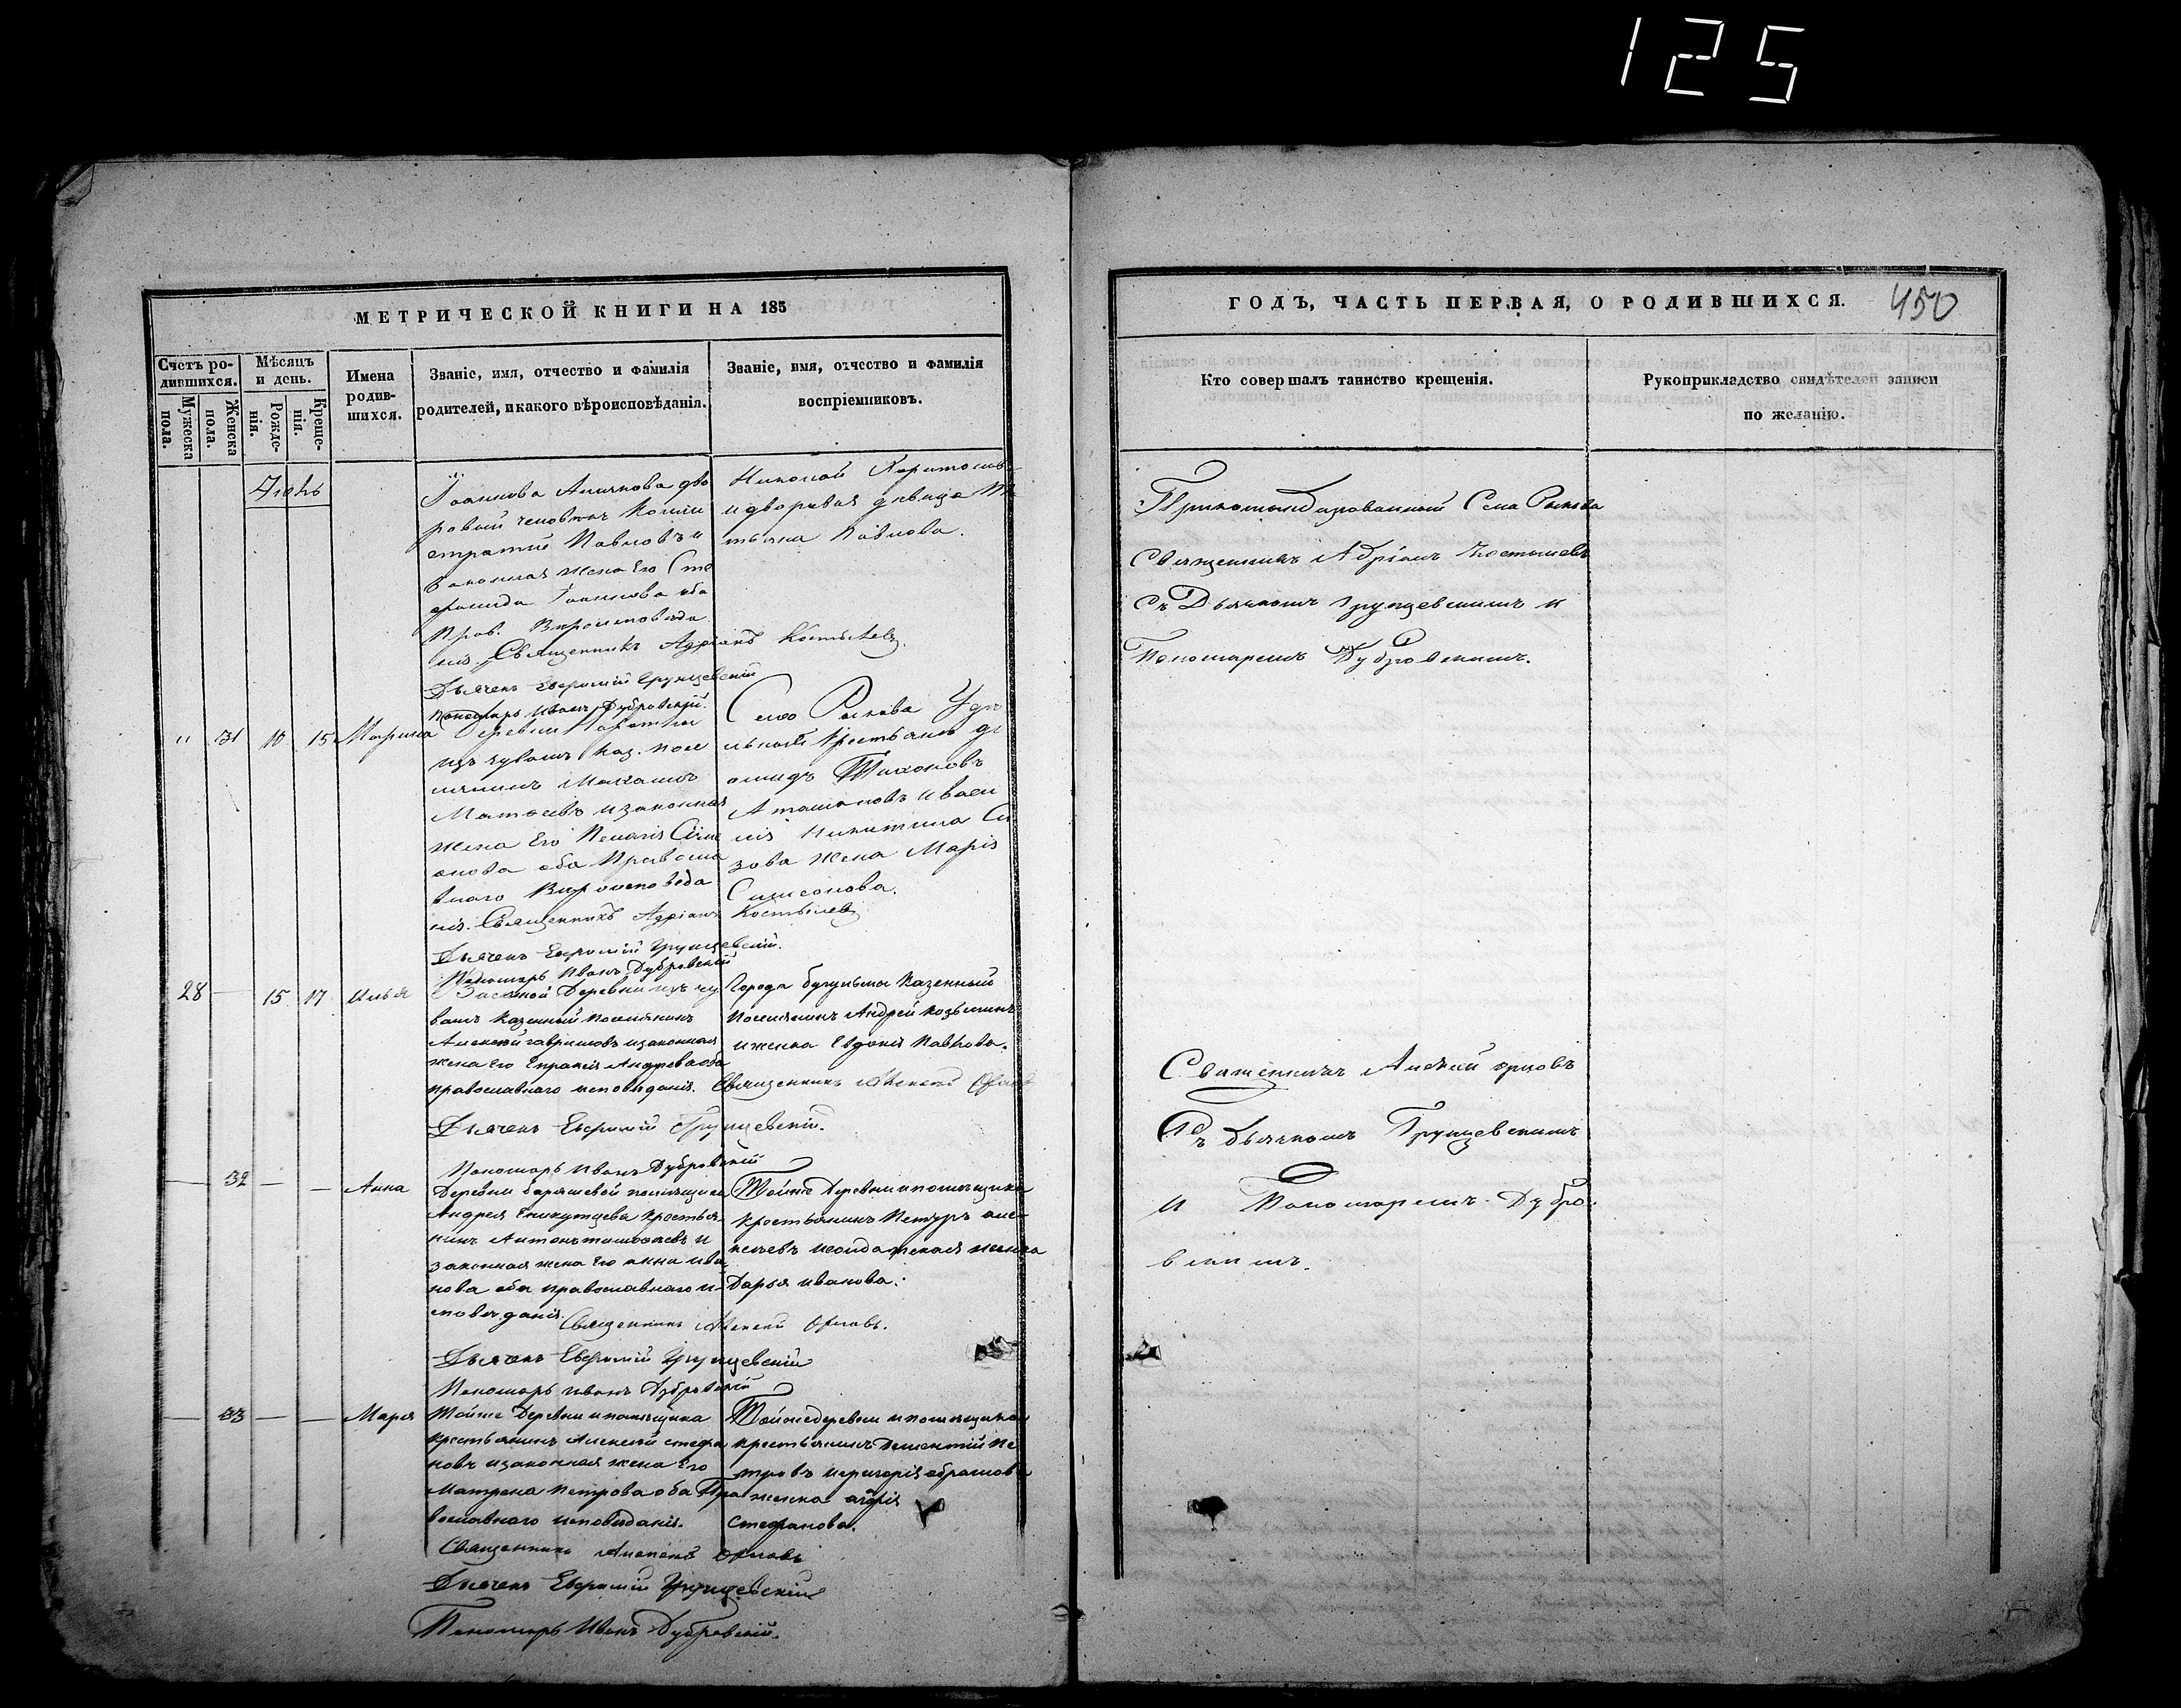 125
МЕТРИЧЕСКОЙ КНИГИ НА 185
Счетъ ро-
дившихся.
Мужеска
пола.
Женска
пола.
Мѣсяцъ
и день.
Рожде-
нія.
Креще-
нія.
Имена
родив-
шихся.
Званіе, имя, отчество и фамилія
родителей, и какого вѣроисповѣданія.
Званіе, имя, отчество и фамилія
воспріемниковъ.
Іюнь
Іоаннова дво
ровый человѣкъ
Павловъ и
законная жена его Сте
фанида Іоаннова оба
Прав. Вѣроисповѣда
нія. Священникъ Адріанъ Костылевъ
Дьячекъ Евфимій Грунцевскій
Пономарь Иванъ Дубровскій.
Николай
и дворовая дѣвица
Павлова.
" 31 10 15 Марина
Деревни
изъ чувашъ Каз. посе
лянинъ
и законная
жена его Пелагія Симе
онова оба Правосла
внаго Вѣроисповѣда
нія. Священникъ Адріанъ Костылевъ
Дьячекъ Евфимій Грунцевскій.
Пономарь Иванъ Дубровскій
Село Рыкова Удѣ
льной Крестьянъ
Тихоновъ
и Васи
лія Никитина Си
зова жена Марія
Симеонова.
28 — 15 17 Илья
Деревни изъ чу
вашъ казенный поселянинъ
Алексѣй Гавриловъ и законная
жена его Андреева оба
православнаго исповѣданія. Священникъ Алексѣй Орловъ
Дьячекъ Евфимій Грунцевскій.
Пономарь Иванъ Дубровскій
Города Бугульмы Казенный
поселянинъ Андрей Козьминъ
и жена Евдокія Павлова.
— 32 — — Анна
Деревни помѣщика
Андрея крестья-
нинъ Антонъ и
законная жена его Анна Ива
нова оба православнаго и-
сповѣданія. Священникъ Алексѣй Орловъ.
Дьячекъ Евфимій Грунцевскій
Пономарь Иванъ Дубровскій
Тойже Деревни и помѣщика
крестьянинъ Петръ Але-
ксѣевъ и солдатская женка
Дарья Иванова.
— 33 — — Марія
Тойже Деревни и помѣщика
крестьянинъ Алексѣй Стефа
новъ и законная жена его
Матрена Петрова оба Пра
вославнаго исповѣданія.
Священникъ Алексѣй Орловъ
Дьячекъ Евфимій Грунцевскій
Пономарь Иванъ Дубровскій.
Тойже деревни и помѣщика
крестьянинъ Дементій Пе
тровъ и Григорія Абрамова
женка
Стефанова.
ГОДЪ, ЧАСТЬ ПЕРВАЯ, О РОДИВШИХСЯ.
450
Кто совершалъ таинство крещенія.
Рукоприкладство свидѣтелей записи
по желанію.
Прикомандированный Села Рыкова
Священникъ Адріанъ Костылевъ
съ Дьячкомъ Грунцевскимъ и
Пономаремъ Дубровскимъ.
Священникъ Алексѣй Орловъ
Съ Дьячкомъ Грунцевскимъ
и Пономаремъ Дубро-
вскимъ.